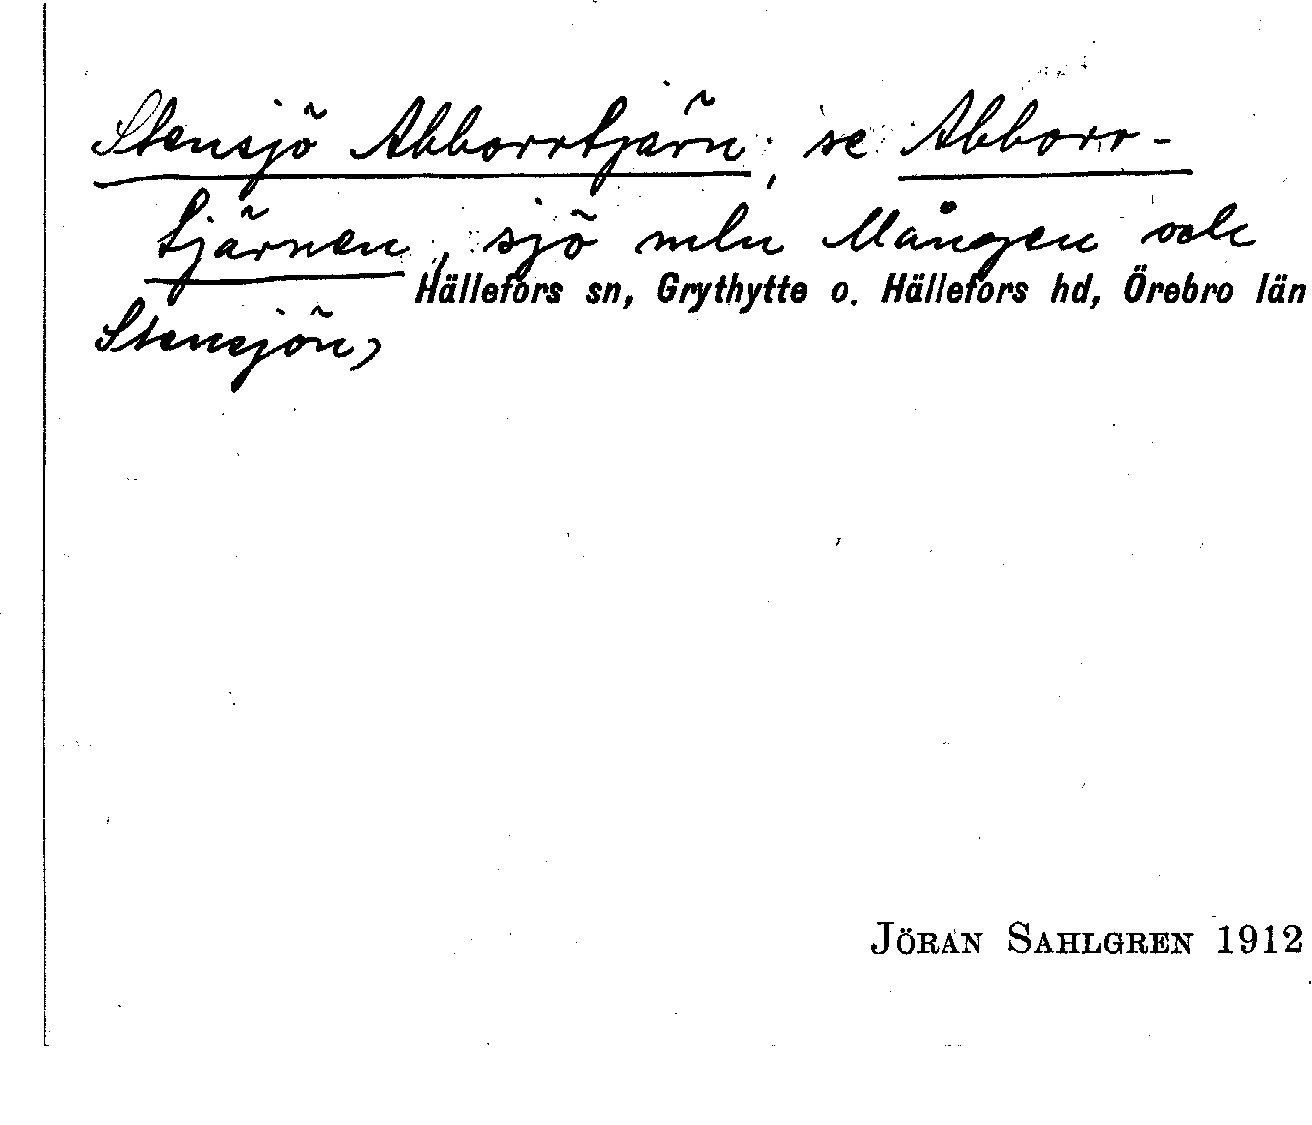 Stensjö Abborrtjärn; se Abborr-
tjärnen, sjö mln Mången och
Hällefors sn, Grythytte o. Hällefors hd, Örebro län
Stensjön,
JÖRAN SAHLGREN 1912